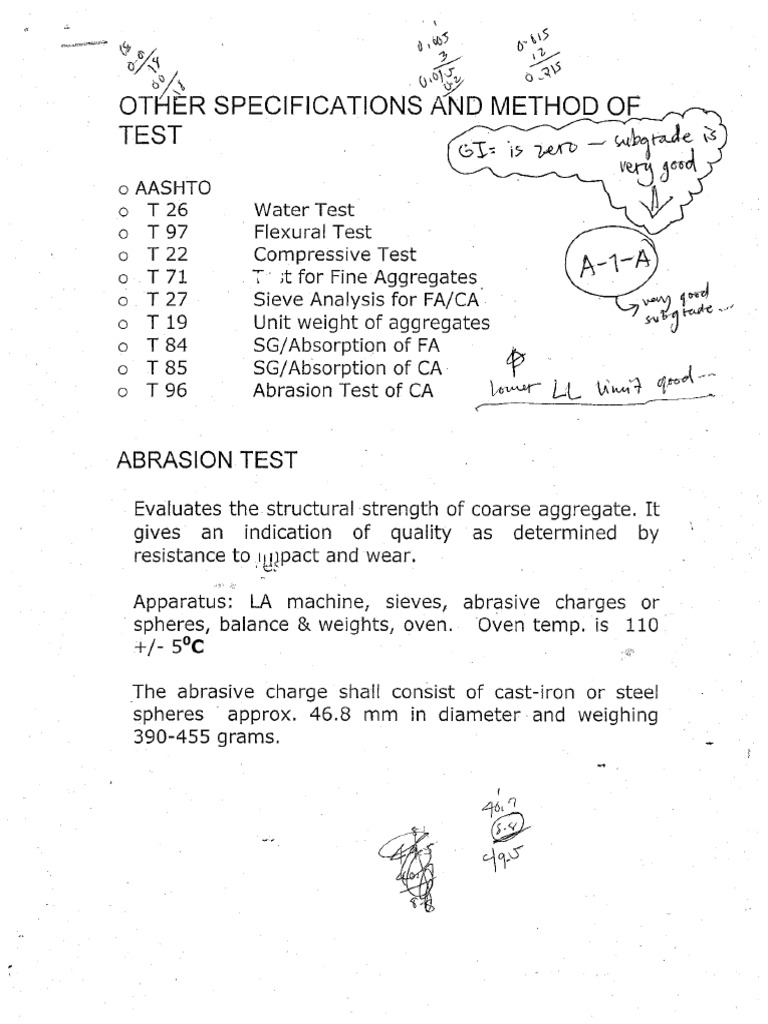 0.605
3
0.015
0.2
0.615
12
0.715
OTHER SPECIFICATIONS AND METHOD OF
TEST
GI= is zero — subgrade is
very good
A-1-A
very good
subgrade...
o AASHTO
o T 26 Water Test
o T 97 Flexural Test
o T 22 Compressive Test
o T 71 for Fine Aggregates
o T 27 Sieve Analysis for FA/CA
o T 19 Unit weight of aggregates
o T 84 SG/Absorption of FA
o T 85 SG/Absorption of CA
o T 96 Abrasion Test of CA
lower LL limit good--
ABRASION TEST
Evaluates the structural strength of coarse aggregate. It
gives an indication of quality as determined by
resistance to impact and wear.
Apparatus: LA machine, sieves, abrasive charges or
spheres, balance & weights, oven. Oven temp. is 110
+/- 5⁰C
The abrasive charge shall consist of cast-iron or steel
spheres approx. 46.8 mm in diameter and weighing
390-455 grams.
40.7
8.8
49.5